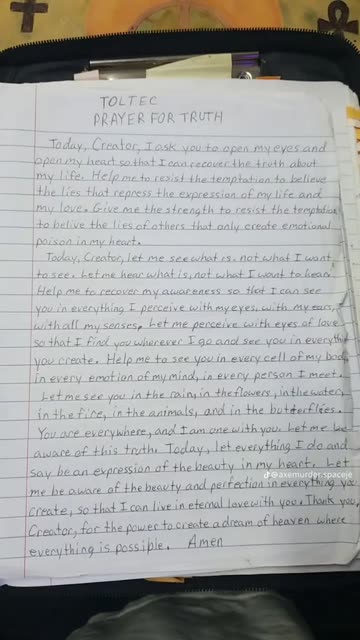 TOLTEC
PRAYER FOR TRUTH
Today, Creator, I ask you to open my eyes and
open my heart so that I can recover the truth about
my life. Help me to resist the temptation to believe
the lies that repress the expression of my life and
my love. Give me the strength to resist the temptation
to belive the lies of others that only create emotional
poison in my heart.
Today, Creator, let me see what is, not what I want
to see. Let me hear what is, not what I want to hear.
Help me to recover my awareness so that I can see
you in everything I perceive with my eyes, with my ears,
with all my senses. Let me perceive with eyes of love
so that I find you wherever I go and see you in everything
you create. Help me to see you in every cell of my body,
in every emotion of my mind, in every person I meet.
Let me see you in the rain, in the flowers, in the water,
in the fire, in the animals, and in the butterflies.
You are everywhere, and I am one with you. Let me be
aware of this truth. Today, let everything I do and
say be an expression of the beauty in my heart. Let
me be aware of the beauty and perfection in everything you
create, so that I can live in eternal love with you. Thank you,
Creator, for the power to create a dream of heaven where
everything is possible. Amen